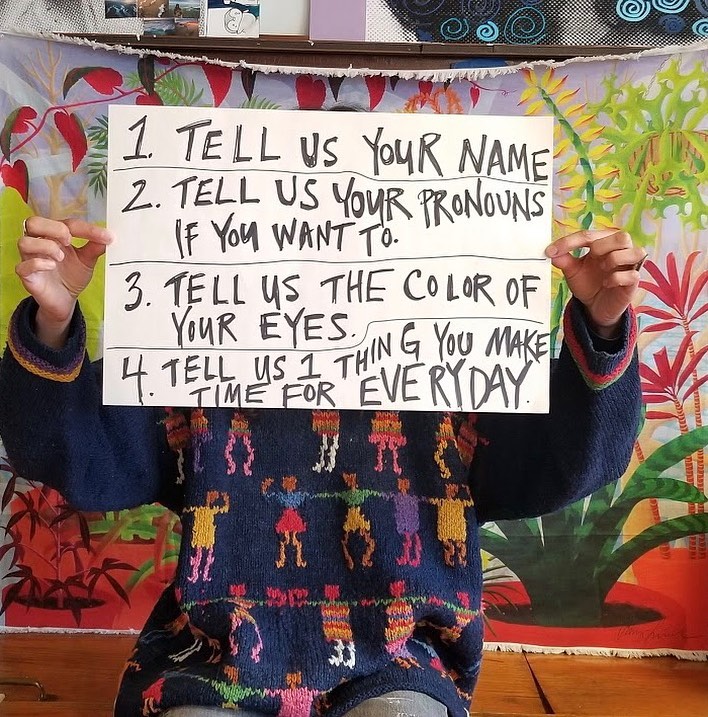 1. TELL US YOUR NAME
2. TELL US YOUR PRONOUNS
IF YOU WANT TO.
3. TELL US THE COLOR OF
YOUR EYES.
4. TELL US 1 THING YOU MAKE
TIME FOR EVERYDAY.